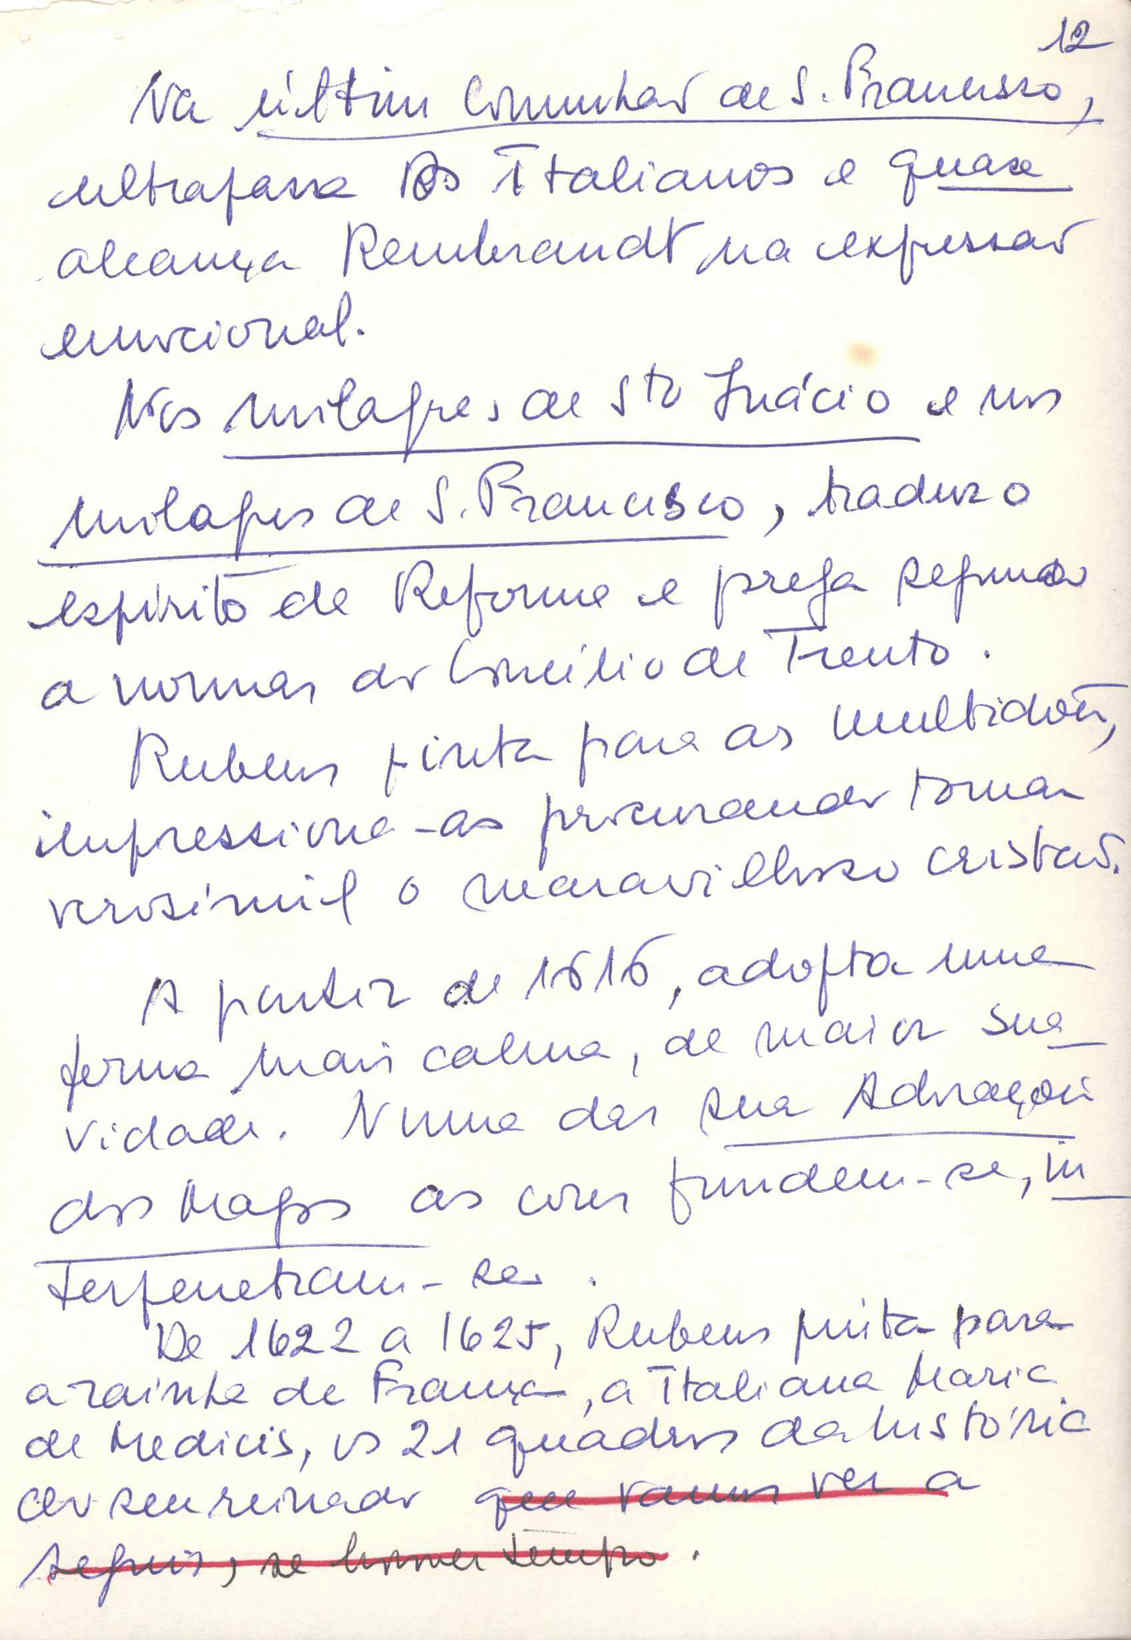 12
Na última Comunhão de S. Francisco,
ultrapassa os Italianos e quase
alcança Rembrandt, na expressão
emocional.
Nos milagres de Sto Inácio e nos
milagres de S. Francisco, traduz o
espírito de Reforma e prega segundo
a normas do Concílio de Trento.
Rubens pinta para as multidões,
impressiona-as procurando tornar
verosímil o maravilhoso cristão.
A partir de 1616, adopta uma
forma mais calma, de maior sua-
vidade. Numa das sua Adorações
dos Magos as cores fundem-se, in-
terpenetram-se.
De 1622 a 1625, Rubens pinta para
a rainha de França, a Italiana Maria
de Medicis, os 21 quadros da história
do seu reinado que vamos ver a
seguir, se houver tempo.